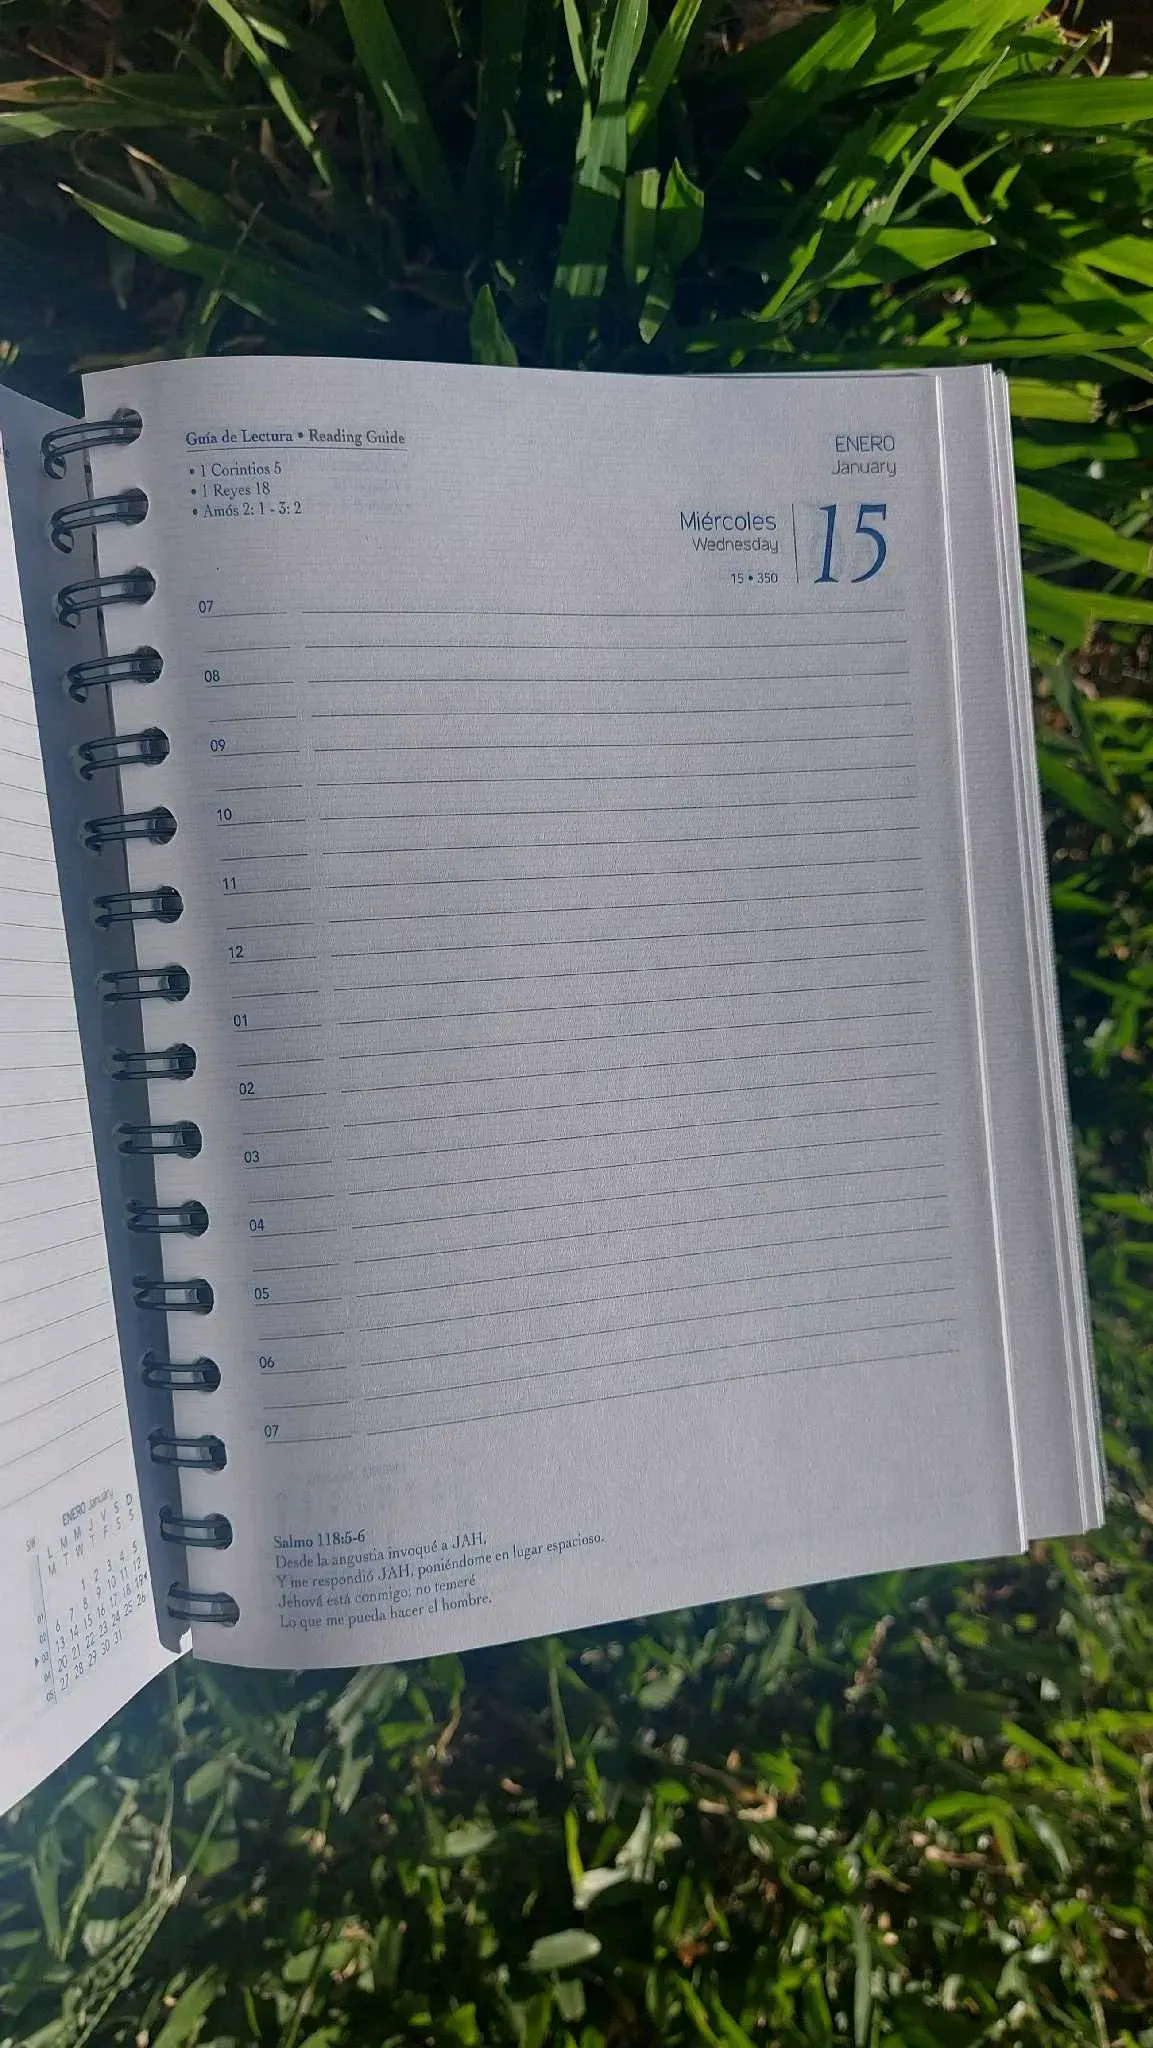 Guía de Lectura • Reading Guide
• 1 Corintios 5
• 1 Reyes 18
• Amós 2: 1 - 3: 2
ENERO
January
Miércoles
Wednesday
15 • 350
15
07
08
09
10
11
12
01
02
03
04
05
06
07
Salmo 118:5-6
Desde la angustia invoqué a JAH,
Y me respondió JAH, poniéndome en lugar espacioso.
Jehová está conmigo; no temeré
Lo que me pueda hacer el hombre.
ENERO January
SW L M M J V S D
M T W T F S S
01 1 2 3 4 5
02 6 7 8 9 10 11 12
▸ 03 13 14 15 16 17 18 19 ◂
04 20 21 22 23 24 25 26
05 27 28 29 30 31